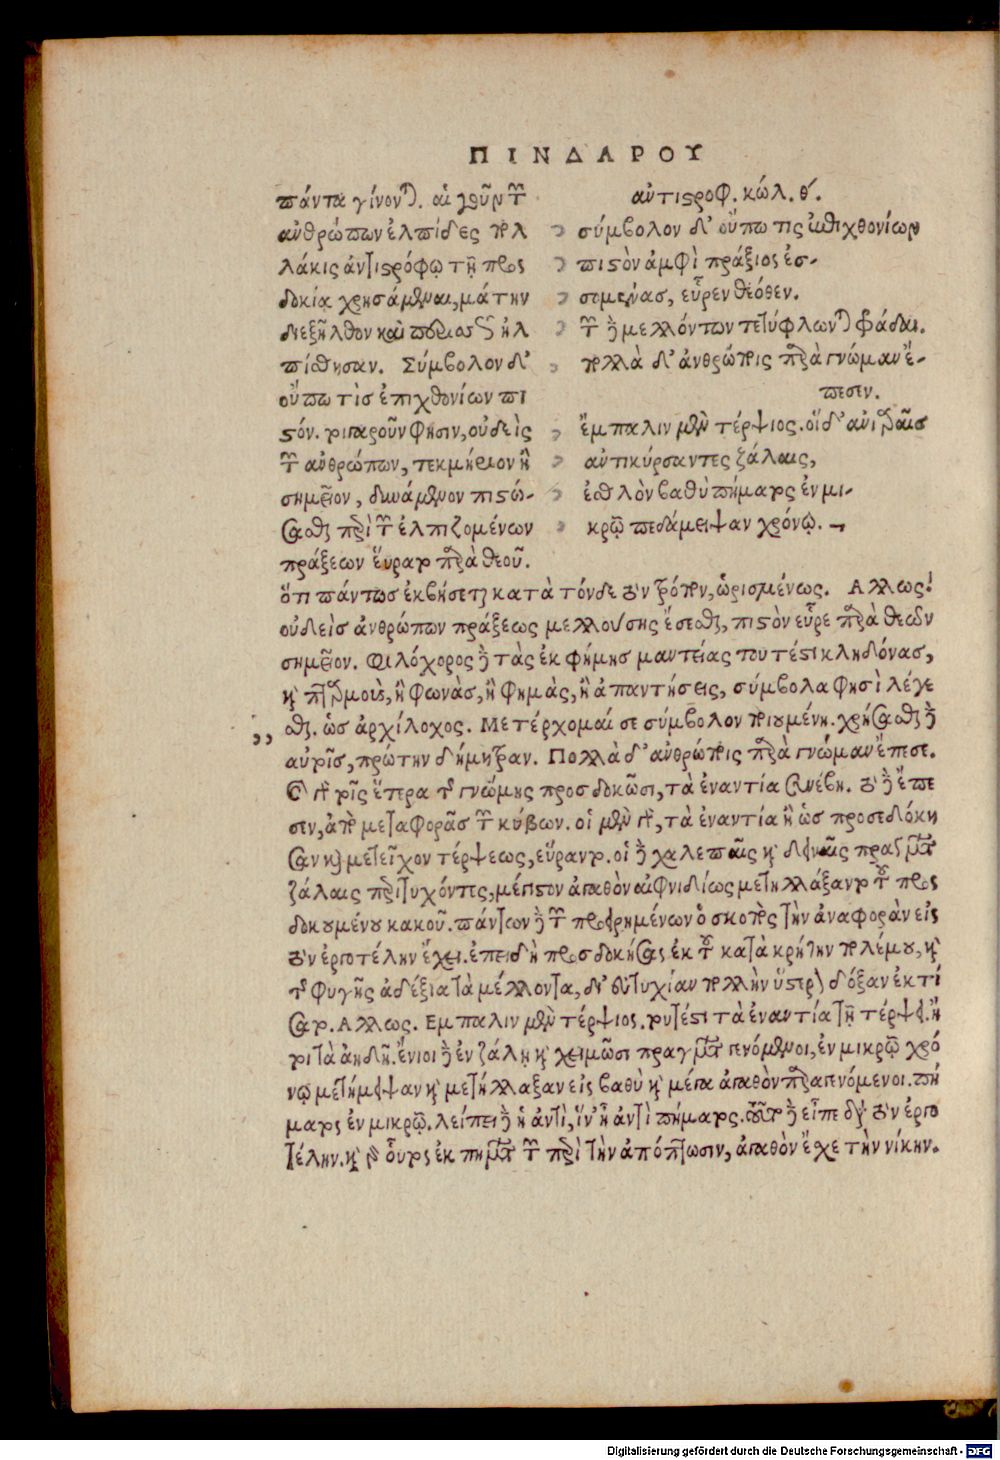 ΠΙΝΔΑΡΟΥ
πάντα γίνονται. αἱ γοῦν τῶν
ἀνθρώπων ἐλπίδες πολ
λάκις ἀντιστρόφῳ τῇ προς
δοκίᾳ χρησάμεναι, μάτην
διεξῆλθον καὶ
πίσθησαν. Σύμβολον δ'
οὔπω τὶσ ἐπιχθονίων πι
στόν. φησιν, οὐδεὶς
τῶν ἀνθρώπων, τεκμήριον ἢ
σημεῖον, δυνάμενον πιστώ-
σασθαι περὶ τῶν ἐλπιζομένων
πράξεων εὕρατο παρὰ θεοῦ.
ἀντιστροφ. κώλ. θ´.
σύμβολον δ' οὔπω τις ἐπιχθονίων
πιστὸν ἀμφὶ πράξιος ἐσ-
σομένας, εὗρεν θεόθεν.
τῶν δὲ μελλόντων τετύφλωνται φράδαι.
πολλὰ δ' ἀνθρώποις παρὰ γνώμαν ἔ-
πεσεν.
ἔμπαλιν μὲν τέρψιος. οἵ δ' ἀνιαραῖσ
ἀντικύρσαντες ζάλαις,
ἐσθλὸν βαθὺ πήματος ἐν μι-
κρῷ πεδάμειψαν χρόνῳ.
ὅτι πάντωσ ἐκβήσεται κατὰ τόνδε τὸν τρόπον, ὡρισμένως. Αλλως.
οὐδεὶσ ἀνθρώπων πράξεως μελλούσης ἔσεσθαι, πιστὸν εὗρε παρὰ θεῶν
σημεῖον. Φιλόχορος δὲ τὰς ἐκ φήμησ μαντείας τουτέστι κληδόνασ,
καὶ πταρμοὺς, ἢ φωνὰσ, ἢ φημὰς, ἢ ἀπαντήσεις, σύμβολα φησὶ λέγε
σθαι. ὡσ ἀρχίλοχος. Μετέρχομαί σε σύμβολον ποιουμένη. χρήσασθαι δὲ
αὐτοῖσ, πρώτην δήμητραν. Πολλὰ δ' ἀνθρώποις παρὰ γνώμαν ἔπεσε.
ὅσα τοῖς ἕτερα τῆς γνώμης προσδοκῶσι, τὰ ἐναντία συνέβη. τὸ δὲ ἔπε
σεν, ἀπὸ μεταφορᾶσ τῶν κύβων. οἱ μὲν γὰρ, τὰ ἐναντία ἢ ὡσ προσεδόκη
σαν καὶ μετεῖχον τέρψεως, εὕραντο. οἱ δὲ χαλεπαῖς καὶ δειναῖς πραγμάτων
ζάλαις περιτυχόντες, μέγιστον ἀγαθὸν αἰφνιδίως μετηλλάξαντο τοῦ προς
δοκουμένου κακοῦ. πάντων δὲ τῶν προειρημένων ὁ σκοπὸς τὴν ἀναφορὰν εἰς
τὸν ἐργοτέλην ἔχει. ἐπειδὴ προσδοκήσας ἐκ τοῦ κατὰ κρήτην πολέμου, καὶ
τῆς φυγῆς ἀδέξια τὰ μέλλοντα, δι' εὐτυχίαν πολλὴν ὕστερον δόξαν ἐκτή
σατο. Αλλως. Εμπαλιν μὲν τέρψιος. τουτέστι τὰ ἐναντία τῇ τέρψει. ἤ
τοι τὰ ἀηδῆ. ἔνιοι δὲ ἐν ζάλῃ καὶ χειμῶσι πραγμάτων γενόμενοι, ἐν μικρῷ χρό
νῳ μετήμειψαν καὶ μετήλλαξαν εἰς βαθὺ καὶ μέγα ἀγαθὸν παραγενόμενοι. πή
ματος ἐν μικρῷ. λείπει δὲ ἡ ἀντὶ, ἵν' ᾖ ἀντὶ πήματος. τοῦτο δὲ εἶπε διὰ τὸν ἐργο
τέλην. καὶ γὰρ οὗτος ἐκ πημάτων τῶν περὶ τὴν ἀπόπτωσιν, ἀγαθὸν ἔσχε τὴν νίκην.
Digitalisierung gefördert durch die Deutsche Forschungsgemeinschaft - DFG